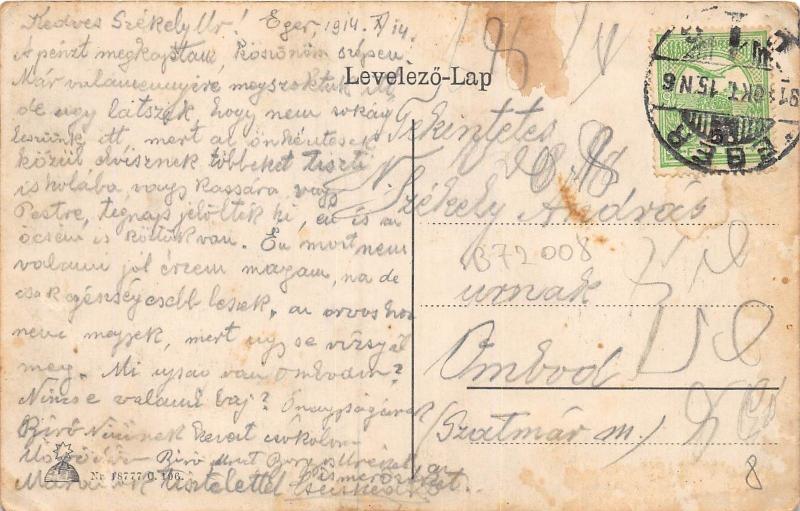 Kedves Székely Ur! Eger, 1914. X/14.
A pénzt megkaptam, köszönöm szépen.
Már valamennyire megszoktuk itt
de ugy látszik, hogy nem sokáig
leszünk itt, mert az önkéntesek
közül elvisznek többeket tiszti
iskolába, vagy Kassára vagy
Pestre, tegnap jelölték ki, én is az
öcsém is köztük van. Én most nem
valami jól érzem magam, na de
csak egészségesebb leszek, az orvoshoz
nem megyek, mert ugy se vizsgál
meg. Mi ujság van Ombodon?
Nincs e valami baj?
Biró Nininek kezeit csókolom
Biró
tisztelettel
Levelező-Lap
Tekintetes
N. Székely András
urnak
Ombod
(Szatmár m.)
B72008
8
EGER
OKT. 15. N 6
Nr. 18777/0. 106.